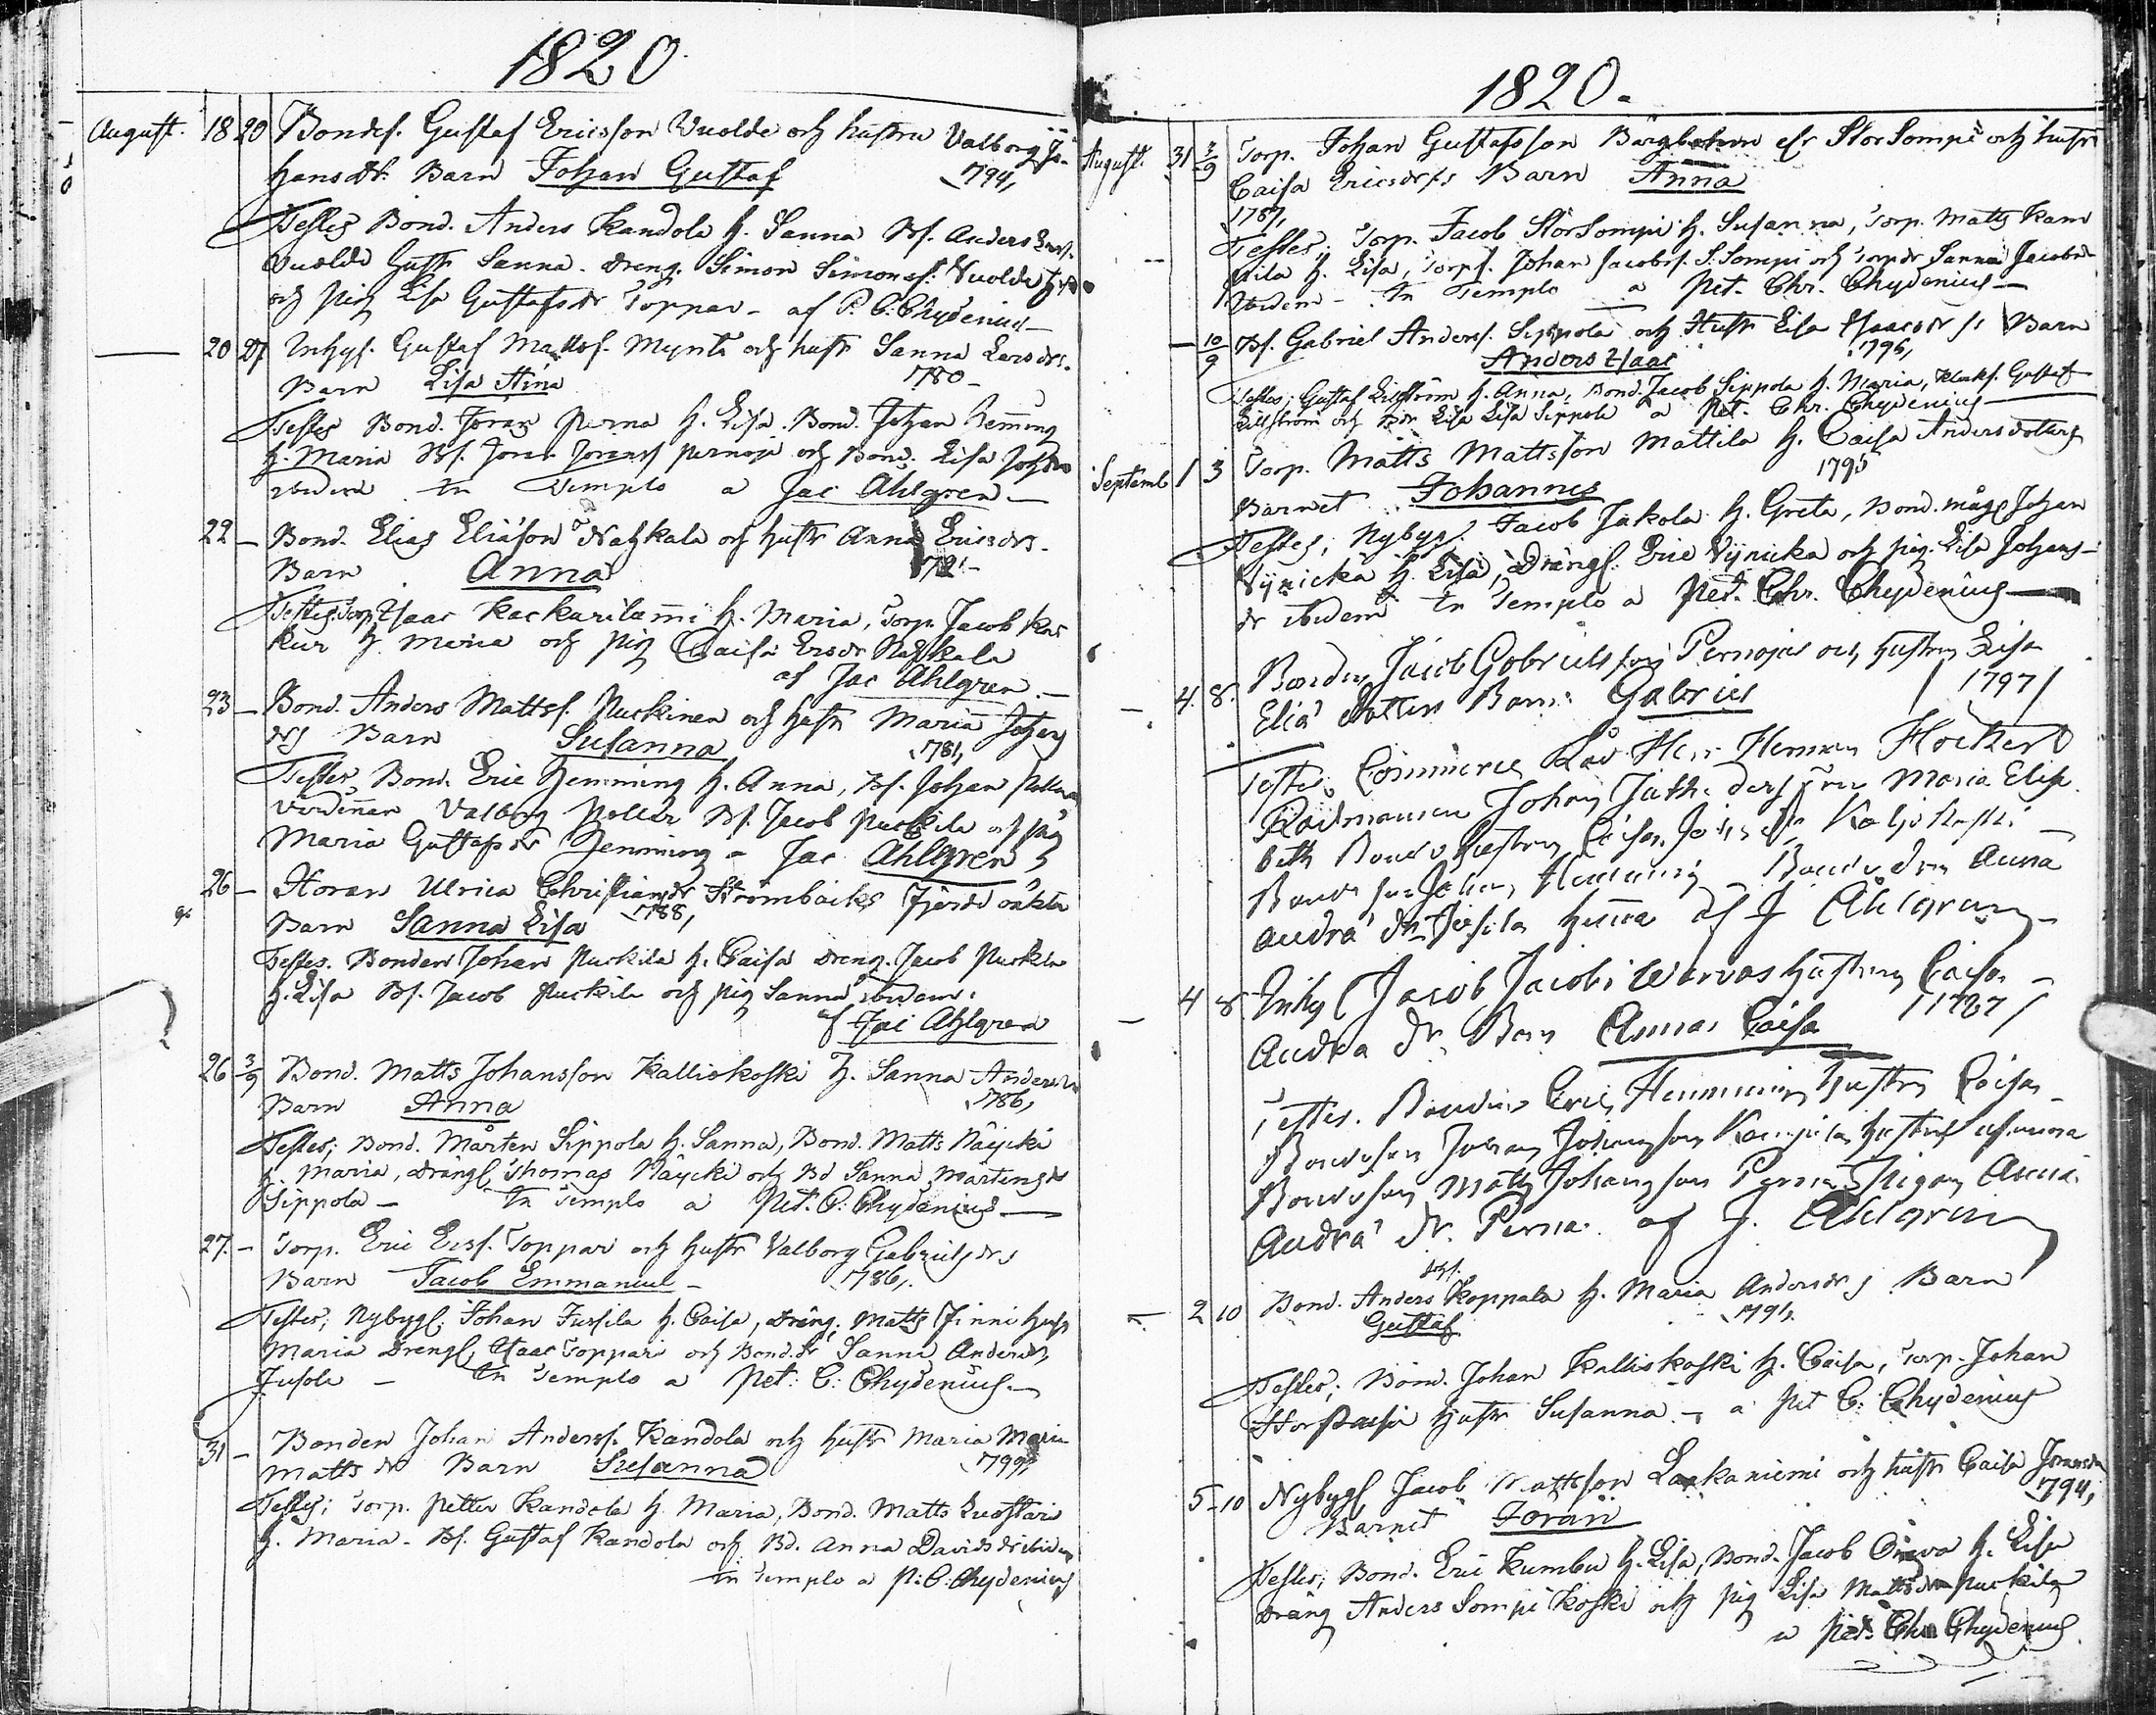 1820.
August. 18 20 Bondes. Gustaf Ericsson Vuolde och hustru Valborg Jo-
hansdr. Barn Johan Gustaf 1794,
Testes Bond. Anders Kandola h. Sanna Bs. Anders Lars.
Vuolde hustr Sanna. dreng. Simon Simonss. Vuolde
och pig Lisa Gustafsdr Toppar - af P. C. Chydenius -
20 27 Inhys. Gustaf Mattss. Myntt och hustr Sanna Larsdrs.
Barn Lisa Stina 1780 -
Testes Bond. Joran Perna h. Lisa. Bond. Johan Hemming
h. Maria Bs. Joran Joranss Pernoja och Bond. Lisa
ibidem in Templo a Jac Ahlgren -
22 - Bond. Elias Eliäson Natzkala och hustr Anna Ericsdrs.
Barn Anna
Testes. Torp. Isaac Kackarilami h. Maria, Torp. Jacob Kac
kur h. Maria och pig Caisa Ersdr Natzkala
af Jac Ahlgren. -
23 - Bond. Anders Mattss. Puckinen och hustr Maria Johans
drs Barn Susanna 1781,
Testes, Bond. Eric Hemming h. Anna, Bs. Johan
värdinnan Valborg Pollar Bs. Jacob Puckila och pig
Maria Gustafsdr Hemming a Jac Ahlgren
26 - Horan Ulrica Christiansdr Strömbäcks fjerde oäkta
Barn Sanna Lisa 1788,
Testes. Bonden Johan Puckila h. Caisa dreng. Jacob Puckila
h. Lisa Bs. Jacob Puckila och pig Sanna ibidem.
af Jac Ahlgren
26 3/9 Bond. Matts Johansson Kalliokoski h. Sanna Andersdr
Barn Anna 1786,
Testes; Bond. Mårten Sippola h. Sanna, Bond. Matts Näycki
h. Maria, drängs Thomas Näycki och Bd Sanna Mårtensdr
Sippola - in Templo a Pet. C. Chydenius -
27. - Torp. Eric Erss. Toppar och hustr Valborg Gabrielsdrs
Barn Jacob Emmanuel - 1786,
Testes; Nybygg. Johan Jussila h. Caisa, dräng. Matts Finni hustr
Maria drengs, Isaac Toppari och Bond.dr Sanna Andersdr,
Jusola - in Templo a Pet: C: Chydenius -
31 - Bonden Johan Anderss. Kandola och hustr Maria Maria
Mattsdr Barn Susanna 1799,
Testes; Torp. Petter Kandola h. Maria, Bond. Matts Luostari
h. Maria - Bs. Gustaf Kandola och Bd. Anna Davidsdr ibidem
in Templo a P: C: Chydenius
1820.
August. 31 3/9 Torp. Johan Gustafsson Bärgbohm efr StorSompi och hustr
Caisa Ericsdrs Barn Anna
1787,
Testes; Torp. Jacob StorSompi h. Susanna, Torp. Matts Kam
pila h. Lisa, Torps. Johan Jacobss. S. Sompi och Torpdr Sanna Jacobsdr
ibidem - in Templo a Pet. Chr. Chydenius -
10/9 Bs. Gabriel Anderss. Sippola och Hustr Lisa Isaacsdrs Barn
Anders Isaac 1796,
Testes; Gustaf Lillström h. Anna, Bond. Jacob Sippola h. Maria, Klocks. Gustaf
Lillström och Bdr Lisa Lisa Sippola a Pet. Chr. Chydenius
Septemb 1 3 Torp. Matts Mattsson Mattila h. Caisa Andersdotters
Barnet Johannes 1795
Testes; Nybygg. Jacob Jakola h. Greta, Bond. mågs Johan
Vijnicka h. Lisa, Drängs. Eric Vijnicka och pig. Lisa Johans-
dr ibidem in Templo a Pet. Chr. Chydenius -
4. 8. Bonden Jacob Gabrielsson Pernojas och hustrun Lisa
Elia dotters Barn: Gabriel / 1797 /
Testes: Commerce Råd Herr Herman Hockert
Rådmannen Johan Jäth: ders Fru Maria Elisa
beth Bonde hustrun Caisa Kaljokoski
Bonde son Johan Hemming Bonde drn Anna
Andra dr Jussila hemma af J Ahlgren -
4 8 Inhy Jacob Jacobi Warvas hustrun Caisa
Andra dr Barn Anna Caisa / 1787 /
Testes. Bonden Eric Hemming hustrun Caisa
Bondeson Johan Johansson Kampila hustru Susanna
Bondeson Matts Johansson Perna Pigan Anna
Andra dr. Perna. af J. Ahlgren
2 10 Bond. Anders Koppala h. Maria Andersdrs Barn
Gustaf 1791,
Testes; Bond. Johan Kalliokoski h. Caisa, Torp. Johan
hustr Susanna - a Pet C: Chydenius
5 - 10 Nybygg Jacob Mattsson Laxkaniemi och hustr Caisa Joransdr
Barnet Joran 1794,
Testes; Bond. Eric Kumbu h. Lisa, Bond. Jacob h. Lisa
dräng Anders Sompi Koski och pig Lisa Mattsdr Puckila
a Pet. Chr Chydenius